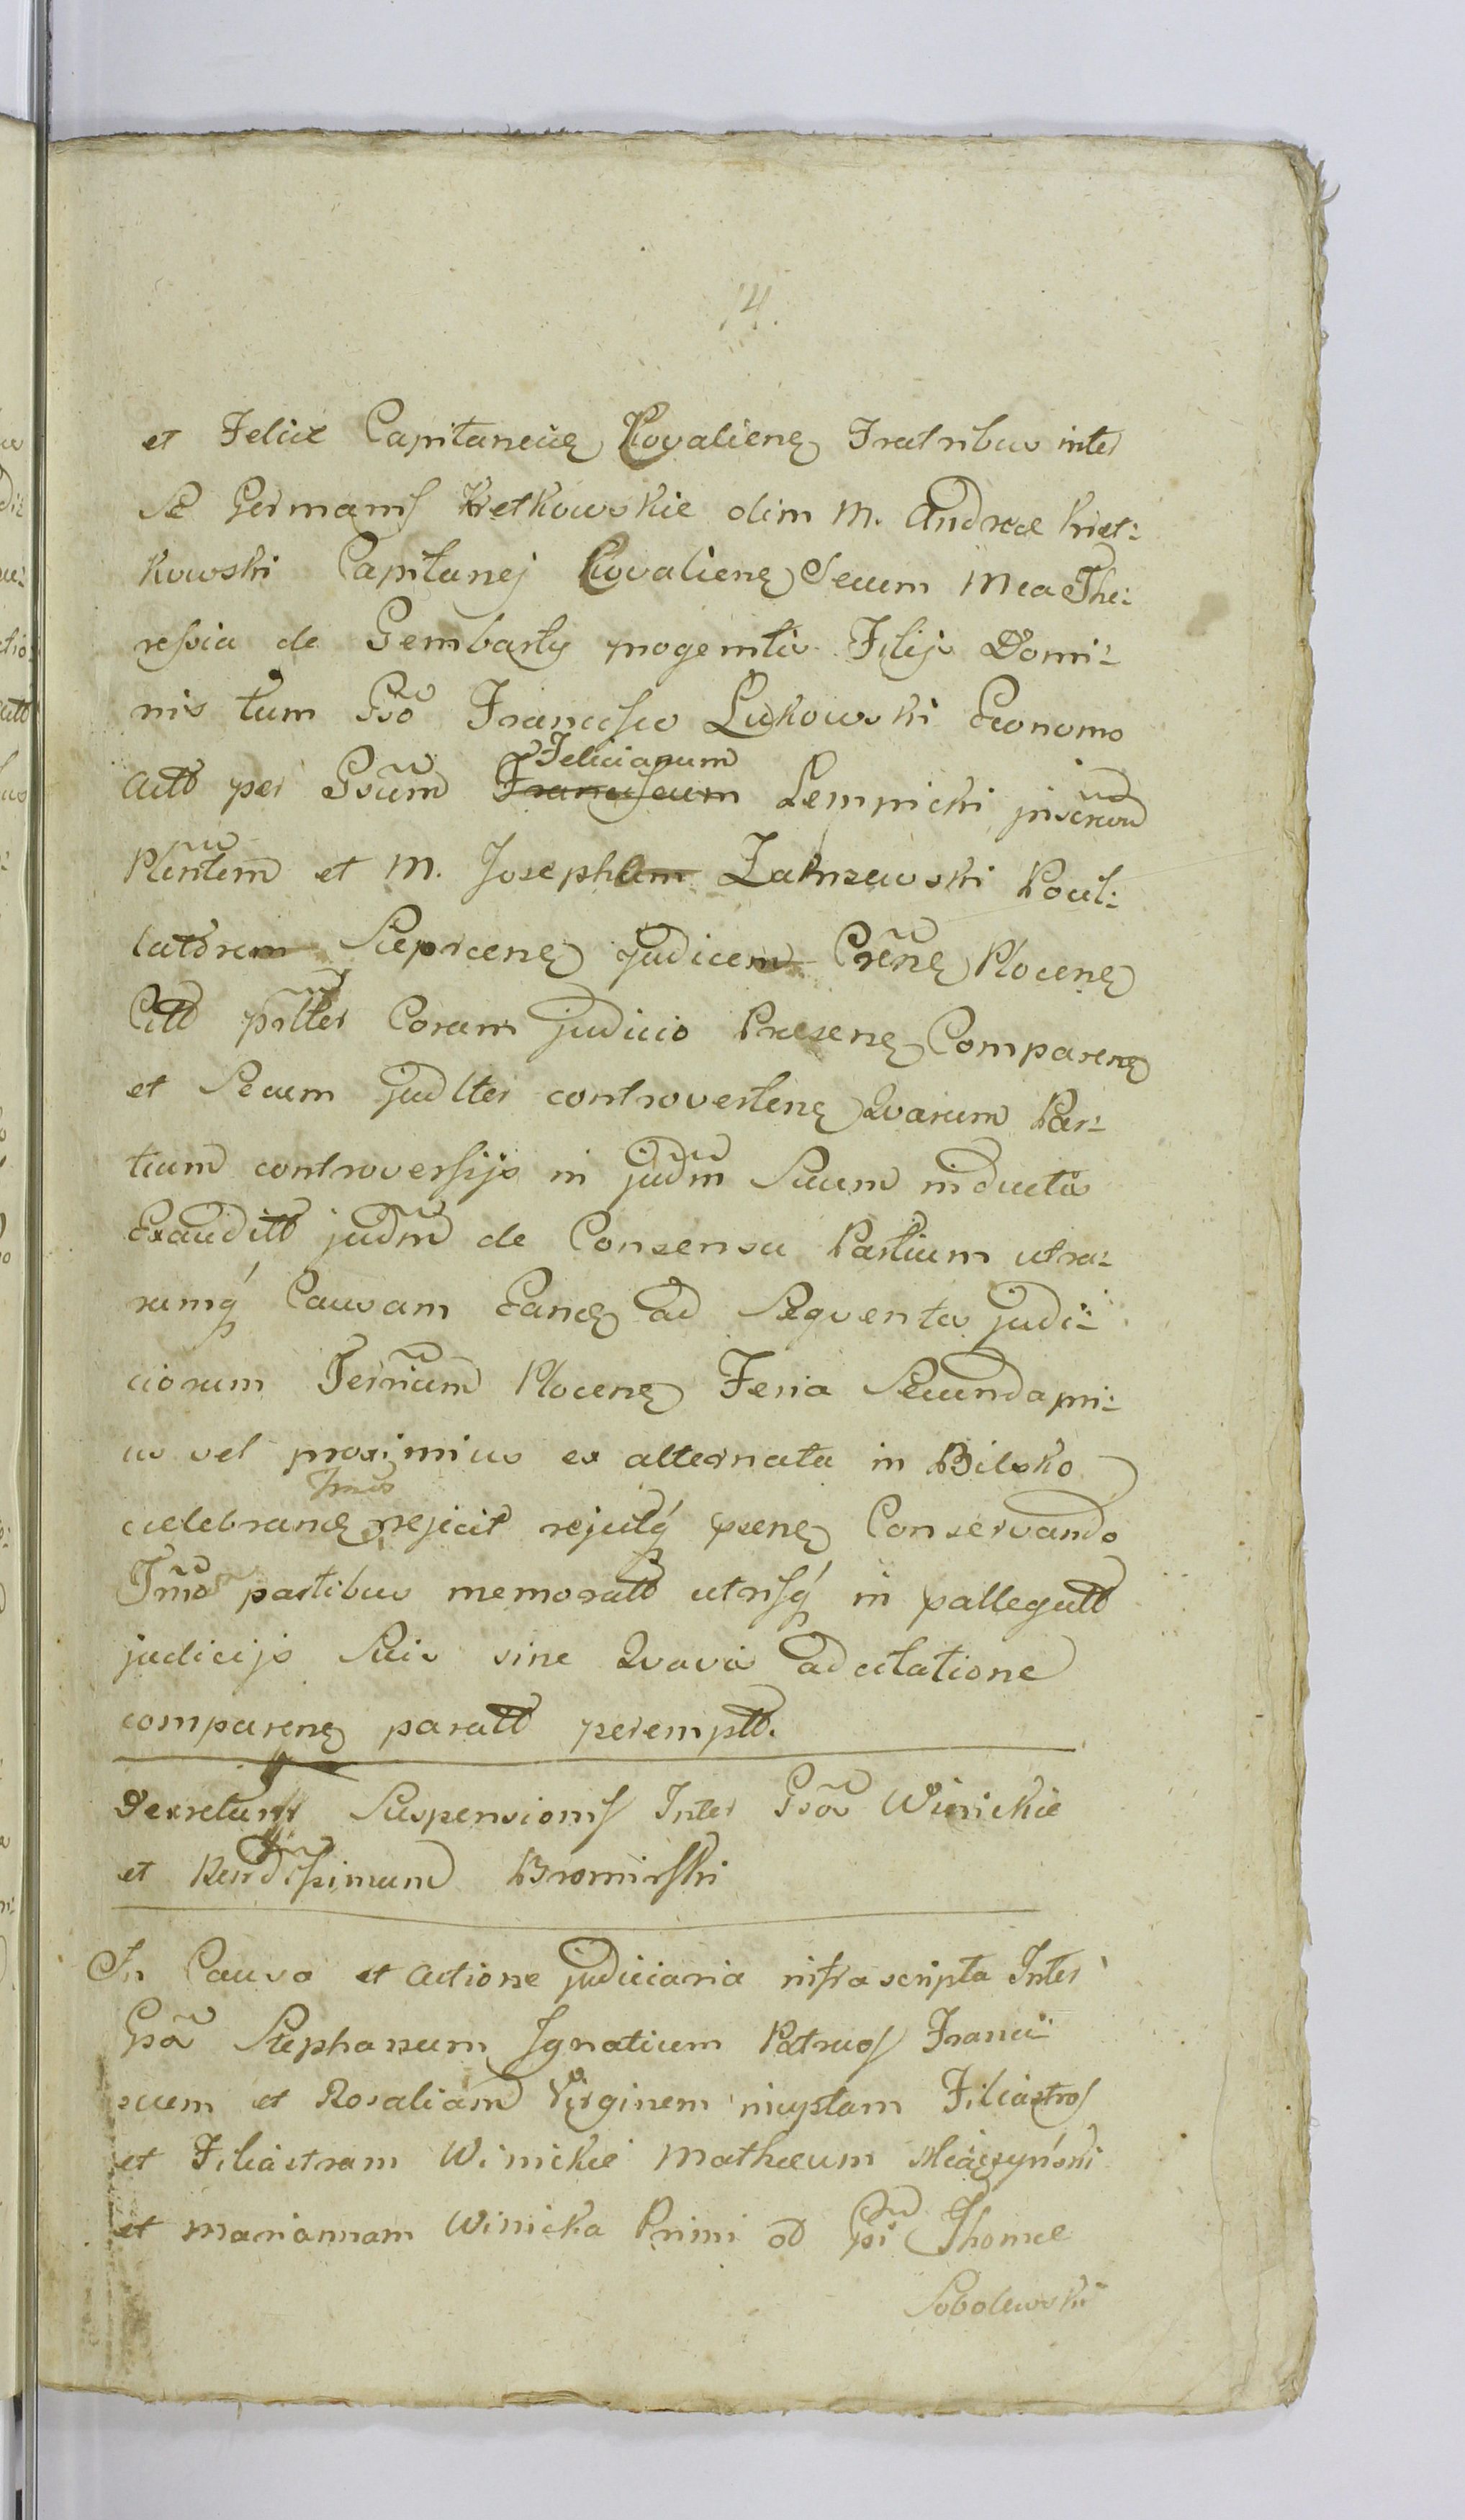 14.
et Felice Capitaneiię Kovalienę Fratribus inter
se Germanis Kretkowskie olim M. Andreae Kret:
kowski Capitanej Kovalienę Secum Mca The:
ressia de Gembarty progenitis Filijs Domi:
nis tum Gso Francisco Lukowski Economo
Actt per Gsum Felicianum Franciscum Lempicki
Plentem et M. Josepham Zakrzewski Pocil:
latorem Sieprcenę Judicem Crenę Plocenę
Citt psltter Coram judicio Praesenę Comparenę
et Secum judlter controvertenę Quarum Par:
tium controversijs in judm Suum inductis
Exauditt judm de Consensu Partium utra:
rumq́ Causam Eandę ad Sequenta judi:
ciorum Terrium Plocenę Feria Secunda pri:
us vel proximius ex alternata in Bilsko
Tmis
celebrandę rejicit rejcitq́ psenę Conservando
Tmo partibus memoratt utrisq́ in pallegatt
judicijs Suis sine Quavis adcitatione
comparenę paratt peremptt.
Decretum Suspensionis Inter Gsos Winickie
et Rerdissimum Bromirski
In Causa et Actione judiciaria infrascripta Inter
Gsos Stephanum Ignatium Patruos Franci:
scum et Rosaliam Virginem inuptam Filiastros
et Filiastram Winickie Mathaeum Miączyński
et Mariannam Winicka Primi od Gsi Thomae
Sobolewski